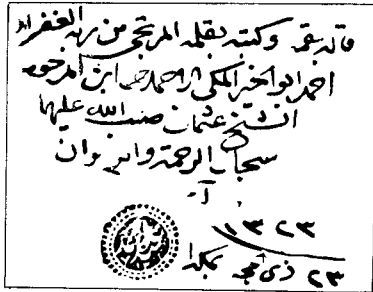 قاله بفمه وكتبه بقلمه المرتجى من ربه الغفران
احمد ابو الخير المكى ابن المرحوم
الشيخ عثمان صبت الله عليهما
سحاب الرحمة والرضوان
١٣٢٣
٢٣ ذى حجه بمكة